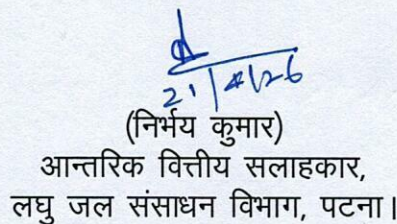 (निर्भय कुमार)
आन्तरिक वित्तीय सलाहकार,
लघु जल संसाधन विभाग, पटना।